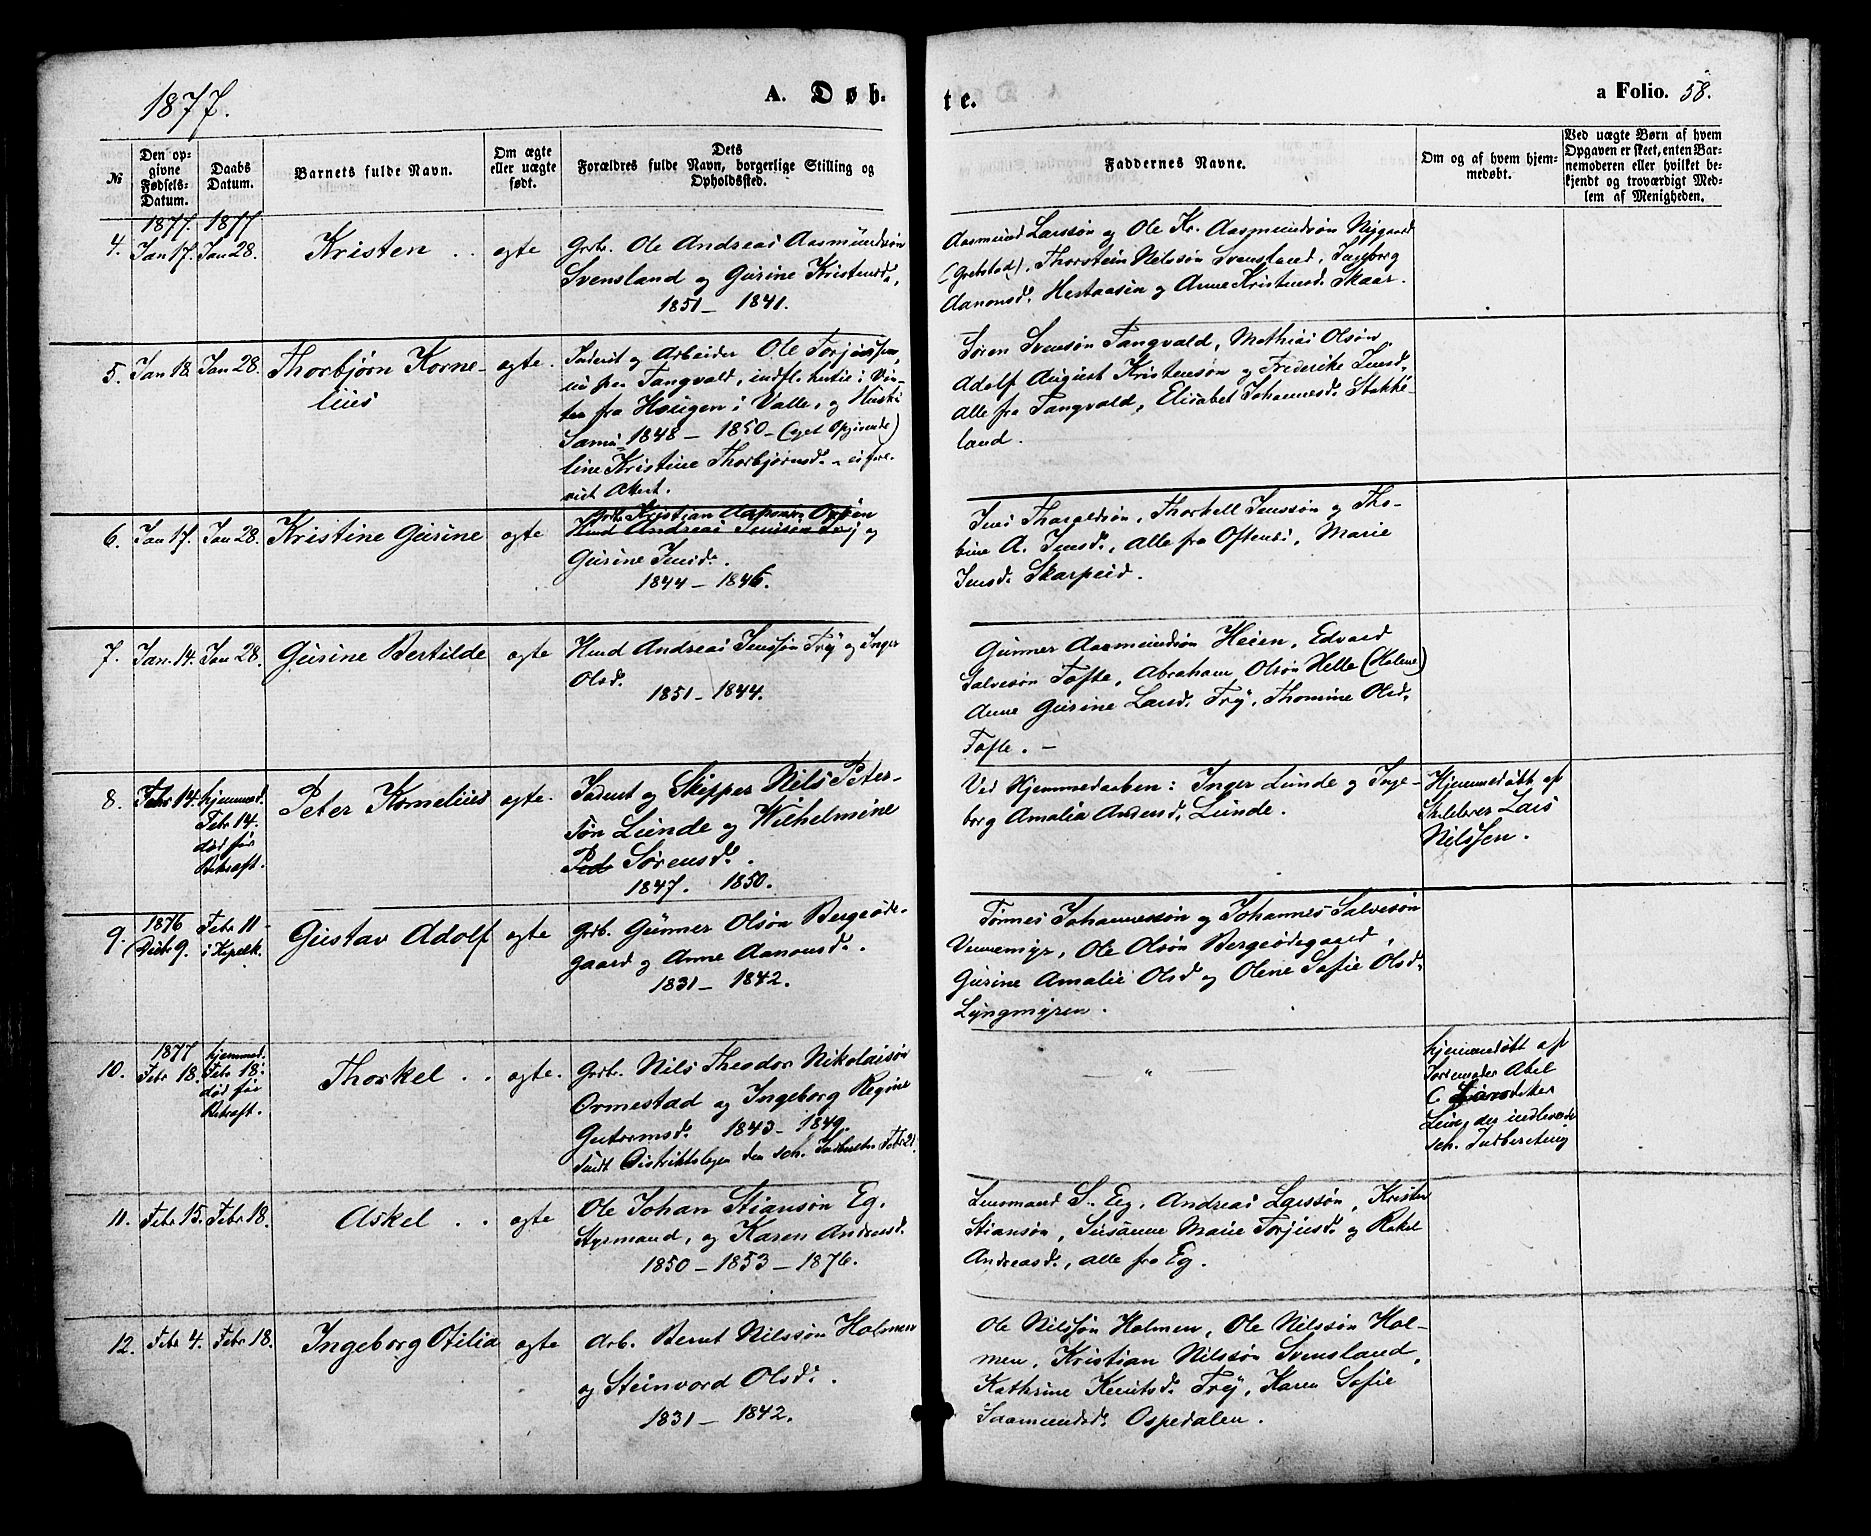 1877.
A. Døb-
te.
a Folio. 58.
№
Den op-
givne
Fødsels-
Datum.
Daabs
Datum.
Barnets fulde Navn.
Om ægte
eller uægte
født.
Dets
Forældres fulde Navn, borgerlige Stilling og
Opholdssted.
Faddernes Navne.
Om og af hvem hjem-
medøbt.
Ved uægte Børn af hvem
Opgaven er skeet, enten Bar-
nemoderen eller hvilket be-
kjendt og troværdigt Med-
lem af Menigheden.
1877. 1877
4. Jan 17. Jan 28. Kristen . . ægte
Grdbr. Ole Andreas Aasmundsøn
Svensland og Gurine Kristensd.
1851 – 1841.
Aasmund Larssøn og Ole Kr. Aasmundsøn Nygaard
(Grebstad), Thorstein Nilssøn Svensland, Ingborg
Aanonsd. Hestaasen og Anne Kristensd. Skaar.
5. Jan 18. Jan 28. Thorbjørn Korne-
lius
ægte.
Inderst og Arbeider Ole Torjussen,
Tangvald, indfl. hertil i Vin-
ter fra Haugen i Valle, og Hustru
Samu- 1848 – 1850 – (eget Opgivende)
line Kristine Thorbjørnsd.
Attest.
Søren Svensøn Tangvald, Mathias Olsøn,
Adolf August Kristensøn og Frederike Jensd.
alle fra Tangvald, Elisabet Johannesd. Stokke-
land.
6. Jan 17. Jan 28. Kristine Gurine ægte
Grdbr. Kristian
Knud Andreas Jenssøn Try og
Gurine Jensd.
1844 – 1846.
Jens Tharaldsøn, Thorkell Jenssøn og Tho-
bine A. Jensd., alle fra Oftenes, Marie
Jensd. Skarpeid.
7. Jan. 14. Jan 28. Gurine Bertilde ægte
Knud Andreas Jenssøn Try og Inger
Olsd.
1851 – 1844.
Gunner Aasmundsøn Heien, Edvard
Salvesøn Tofte, Abraham Olsøn Helle (Holene)
Anne Gurine Larsd. Try, Thomine Olsd.
Tofte. –
8. Febr 14. hjemmed.
Febr 14.
død før
Bekræft.
Peter Kornelius ægte.
Inderst og Skipper Nils Peter-
søn Lunde og Wilhelmine
Ped Sørensd.
1847. 1850.
Ved Hjemmedaaben: Inger Lunde og Inge-
borg Amalia Andersd. Lunde.
Hjemmedøbt af
Skolelærer Lars
Nilssen.
1876
9. Decbr 9. Febr 11
i Kapelk.
Gustav Adolf ægte
Grdb. Gunner Olsøn Bergeøde-
gaard og Anne Aanonsd.
1831 – 1842.
Tønnes Johannessøn og Johannes Salvesøn
Vennemyr, Ole Olsøn Bergeødegaard,
Gurine Amalie Olsd og Olene Sofie Olsd.
Lyngmyren.
1877
10. Febr 18. hjemmed.
Febr 18.
død før
Bekræft.
Thorkel . . ægte.
Grdbr. Nils Theodor Nikolaisøn
Ormestad og Ingeborg Regine
Gutormsd. 1843 – 1849.
sendt Distriktslægen den sch. Indberetn Febr 21.
– „ –
hjemmedøbt af
Jordemoder Abel
C
Lunde, der indleverede
sch. Indberetning
11. Febr 15. Febr 18. Askel . . ægte
Ole Johan Stiansøn Eg,
Styrmand, og Karen Andreasd.
1850 – 1853 – 1876.
Lensmand S. Eg, Andreas Larssøn, Kristen
Stiansøn, Susanne Marie Torjusd. og Rakel
Andreasd., alle fra Eg.
12. Febr 4. Febr 18. Ingeborg Otilia ægte
Arb. Bernt Nilssøn Holmen
og Steinvord Olsd.
1831 – 1842.
Ole Nilssøn Holmen, Ole Nilssøn Hol-
men, Kristian Nilssøn Svensland,
Kathrine Knutsd. Try, Karen Sofie
Saamundsd. Ospedalen.